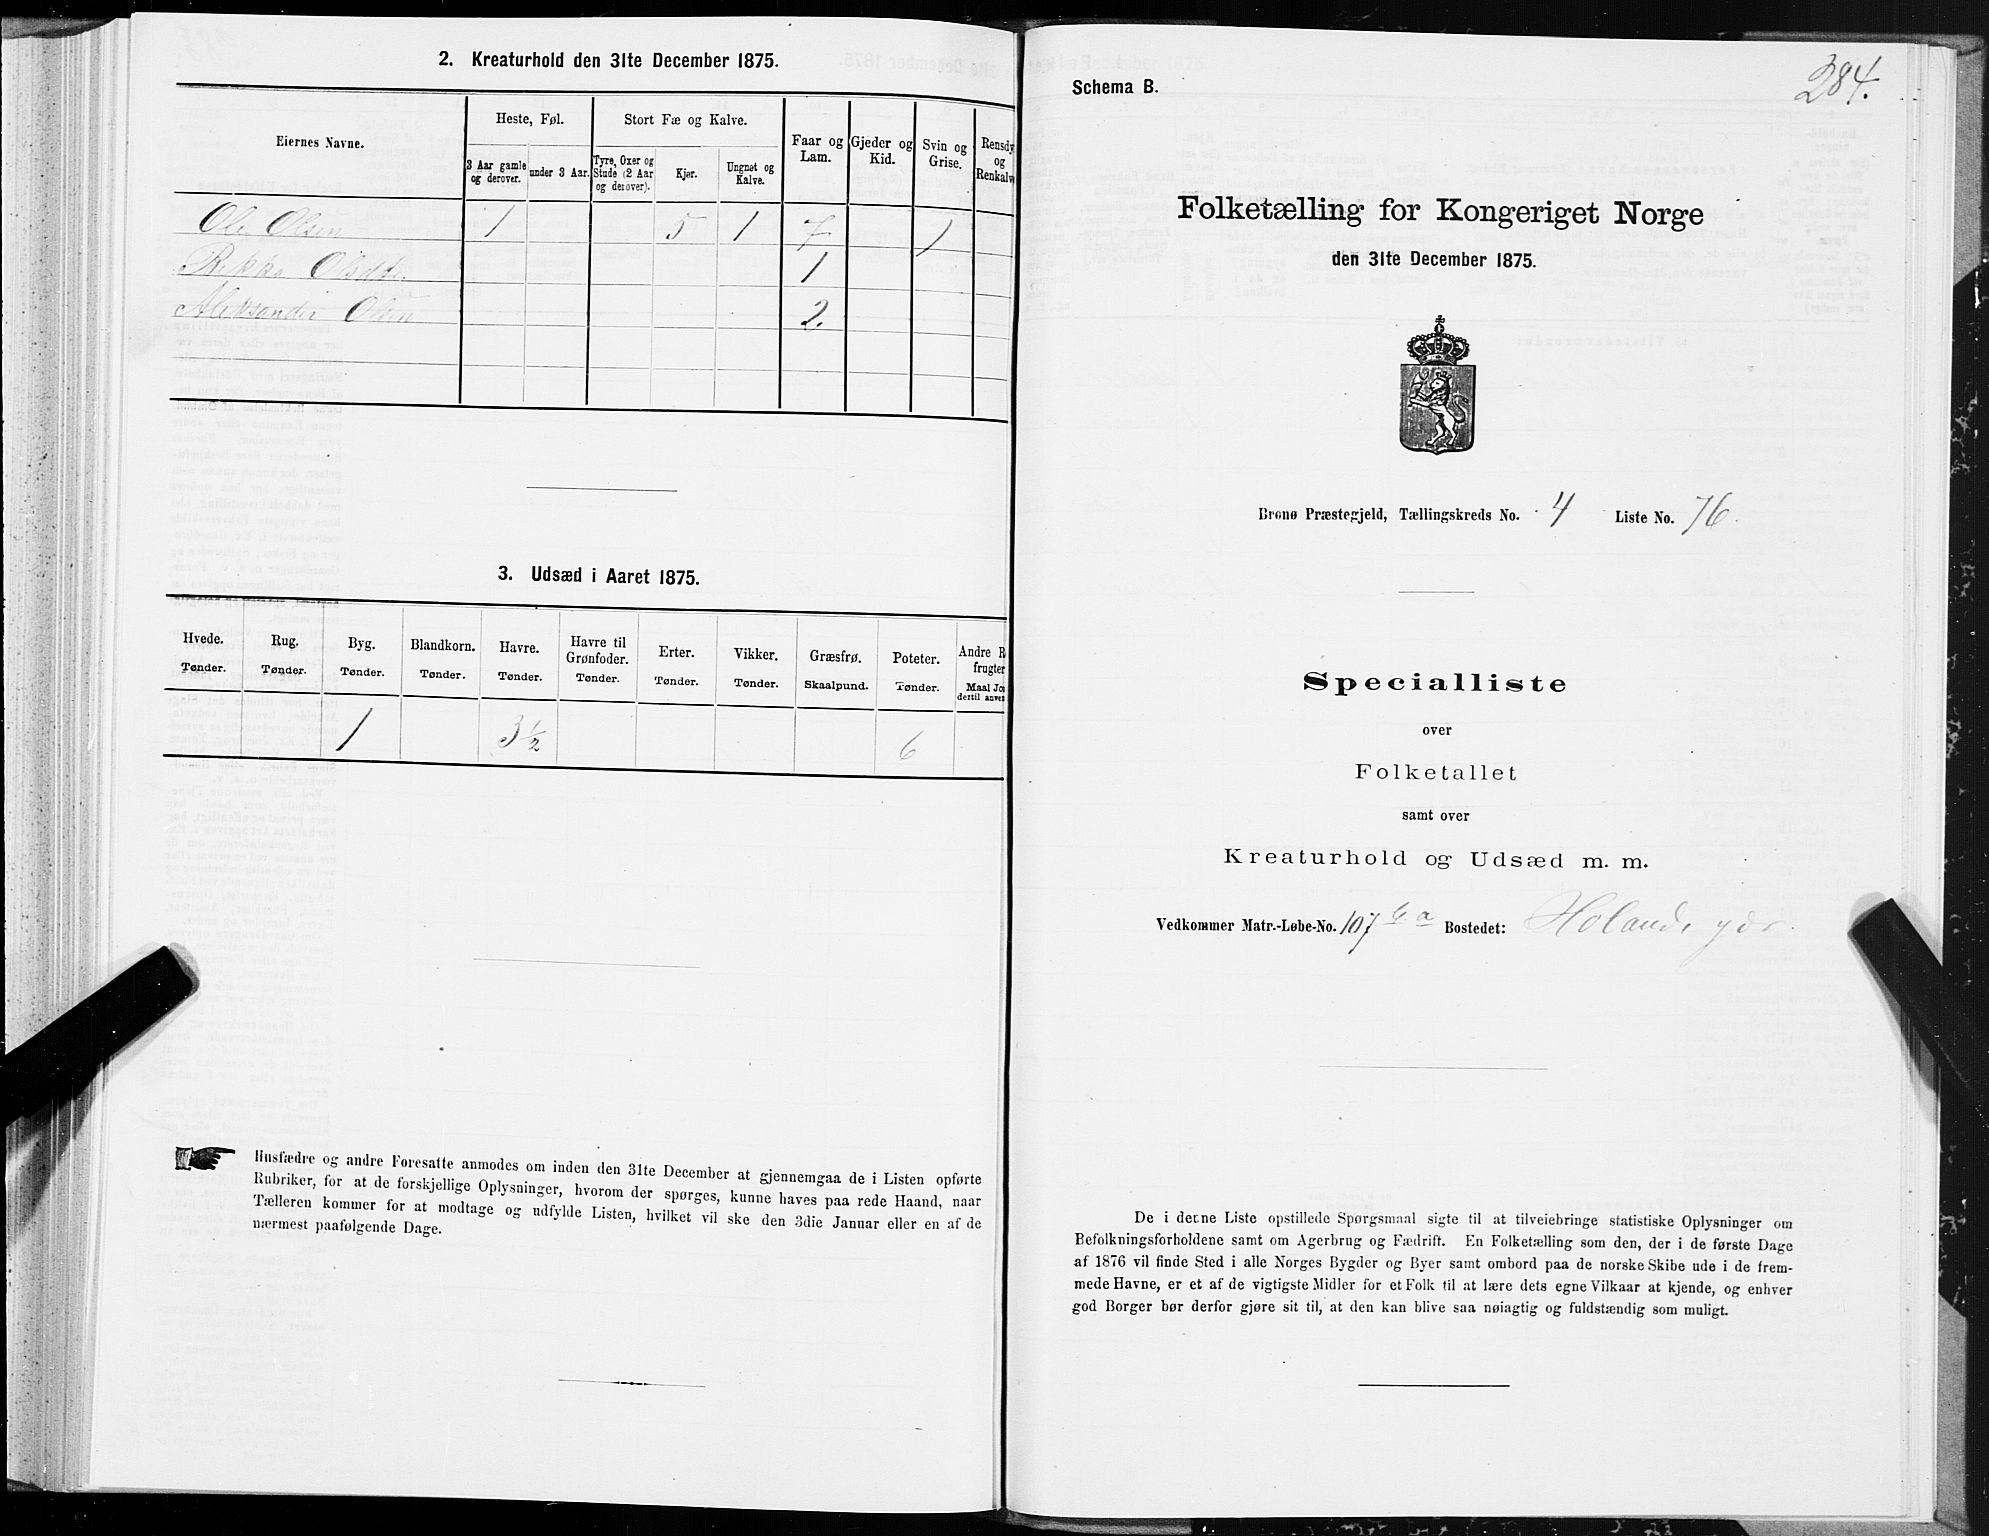 2. Kreaturhold den 31te December 1875.
Eiernes Navne.
Heste, Føl.
Stort Fæ og Kalve.
Faar og Lam.
Gjeder og Kid.
Svin og Grise.
Rensdy og Renkalv
3 Aar gamle og derover.
under 3 Aar.
Tyre, Oxer og Stude (2 Aar og derover).
Kjør.
Ungnøt og Kalve.
Ole Olsen 1 5 1 7 1
Rikka Olsdtr. 1
Aleksander Olsen 2.
3. Udsæd i Aaret 1875.
Hvede. Rug. Byg. Blandkorn. Havre. Havre til Grønfoder. Erter. Vikker. Græsfrø. Poteter. Andre R frugter
Tønder. Tønder. Tønder. Tønder. Tønder. Tønder. Tønder. Tønder. Skaalpund. Tønder. Maal Jo dertil anven
1 3 1/2 6
Husfædre og andre Foresatte anmodes om inden den 31te December at gjennemgaa de i Listen opførte
Rubriker, for at de forskjellige Oplysninger, hvorom der spørges, kunne haves paa rede Haand, naar
Tælleren kommer for at modtage og udfylde Listen, hvilket vil ske den 3die Januar eller en af de
nærmest paafølgende Dage.
284.
Schema B.
Folketælling for Kongeriget Norge
den 31te December 1875.
Brønø Præstegjeld, Tællingskreds No. 4 Liste No. 76.
Specialliste
over
Folketallet
samt over
Kreaturhold og Udsæd m. m.
Vedkommer Matr.-Løbe-No. 107 a Bostedet: Holand, ydr.
De i denne Liste opstillede Spørgsmaal sigte til at tilveiebringe statistiske Oplysninger om
Befolkningsforholdene samt om Agerbrug og Fædrift. En Folketælling som den, der i de første Dage
af 1876 vil finde Sted i alle Norges Bygder og Byer samt ombord paa de norske Skibe ude i de frem-
mede Havne, er et af de vigtigste Midler for et Folk til at lære dets egne Vilkaar at kjende, og enhver
god Borger bør derfor gjøre sit til, at den kan blive saa nøiagtig og fuldstændig som muligt.